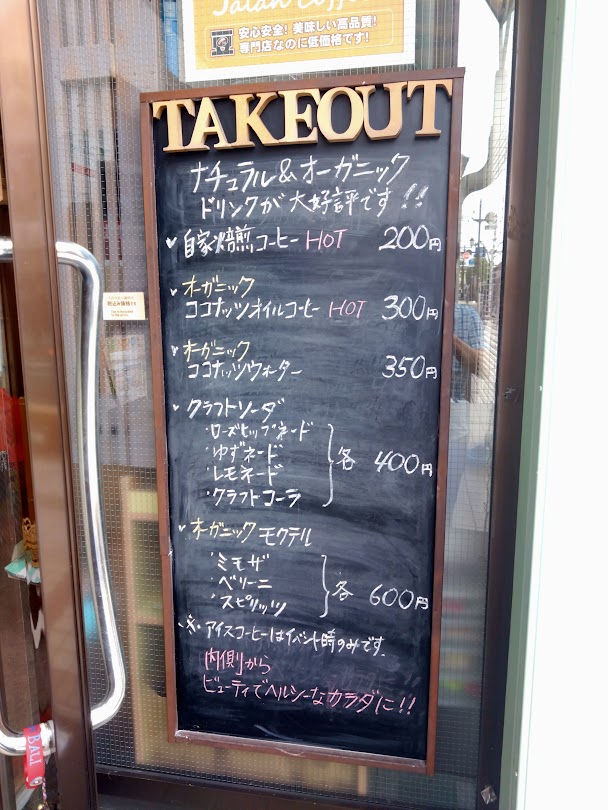 Jalan Coffee
安心安全！美味しい高品質！
専門店なのに低価格です！
TAKEOUT
ナチュラル&オーガニック
ドリンクが大好評です!!
自家焙煎コーヒー HOT 200円
オーガニック
ココナッツオイルコーヒー HOT 300円
オーガニック
ココナッツウォーター 350円
クラフトソーダ
・ローズヒップネード
・ゆずネード
・レモネード
・クラフトコーラ
各 400円
オーガニック モクテル
・ミモザ
・ベリーニ
・スピリッツ
各 600円
※アイスコーヒーはイベント時のみです.
内側から
ビューティでヘルシーなカラダに!!
税込み価格
BALI